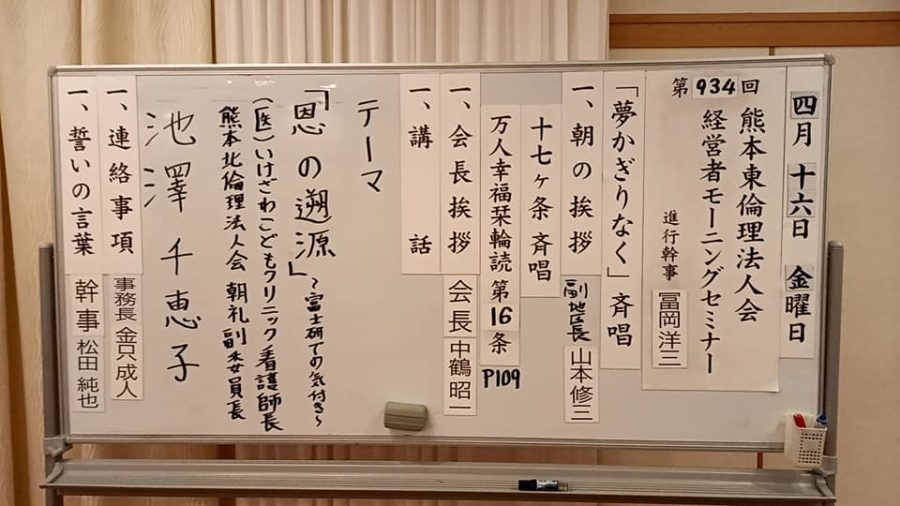 四月十六日 金曜日
第934回 熊本東倫理法人会
経営者モーニングセミナー
進行幹事 冨岡洋三
「夢かぎりなく」斉唱
一、朝の挨拶 副地区長 山本修三
十七ヶ条斉唱
万人幸福栞輪読 第16条 P109
一、会長挨拶 会長 中鶴昭一
一、講話
テーマ
「恩の遡源」〜富士研での気付き〜
(医)いけざわこどもクリニック 看護師長
熊本北倫理法人会 朝礼副委員長
池澤千恵子
一、連絡事項 事務長 金只成人
一、誓いの言葉 幹事 松田純也